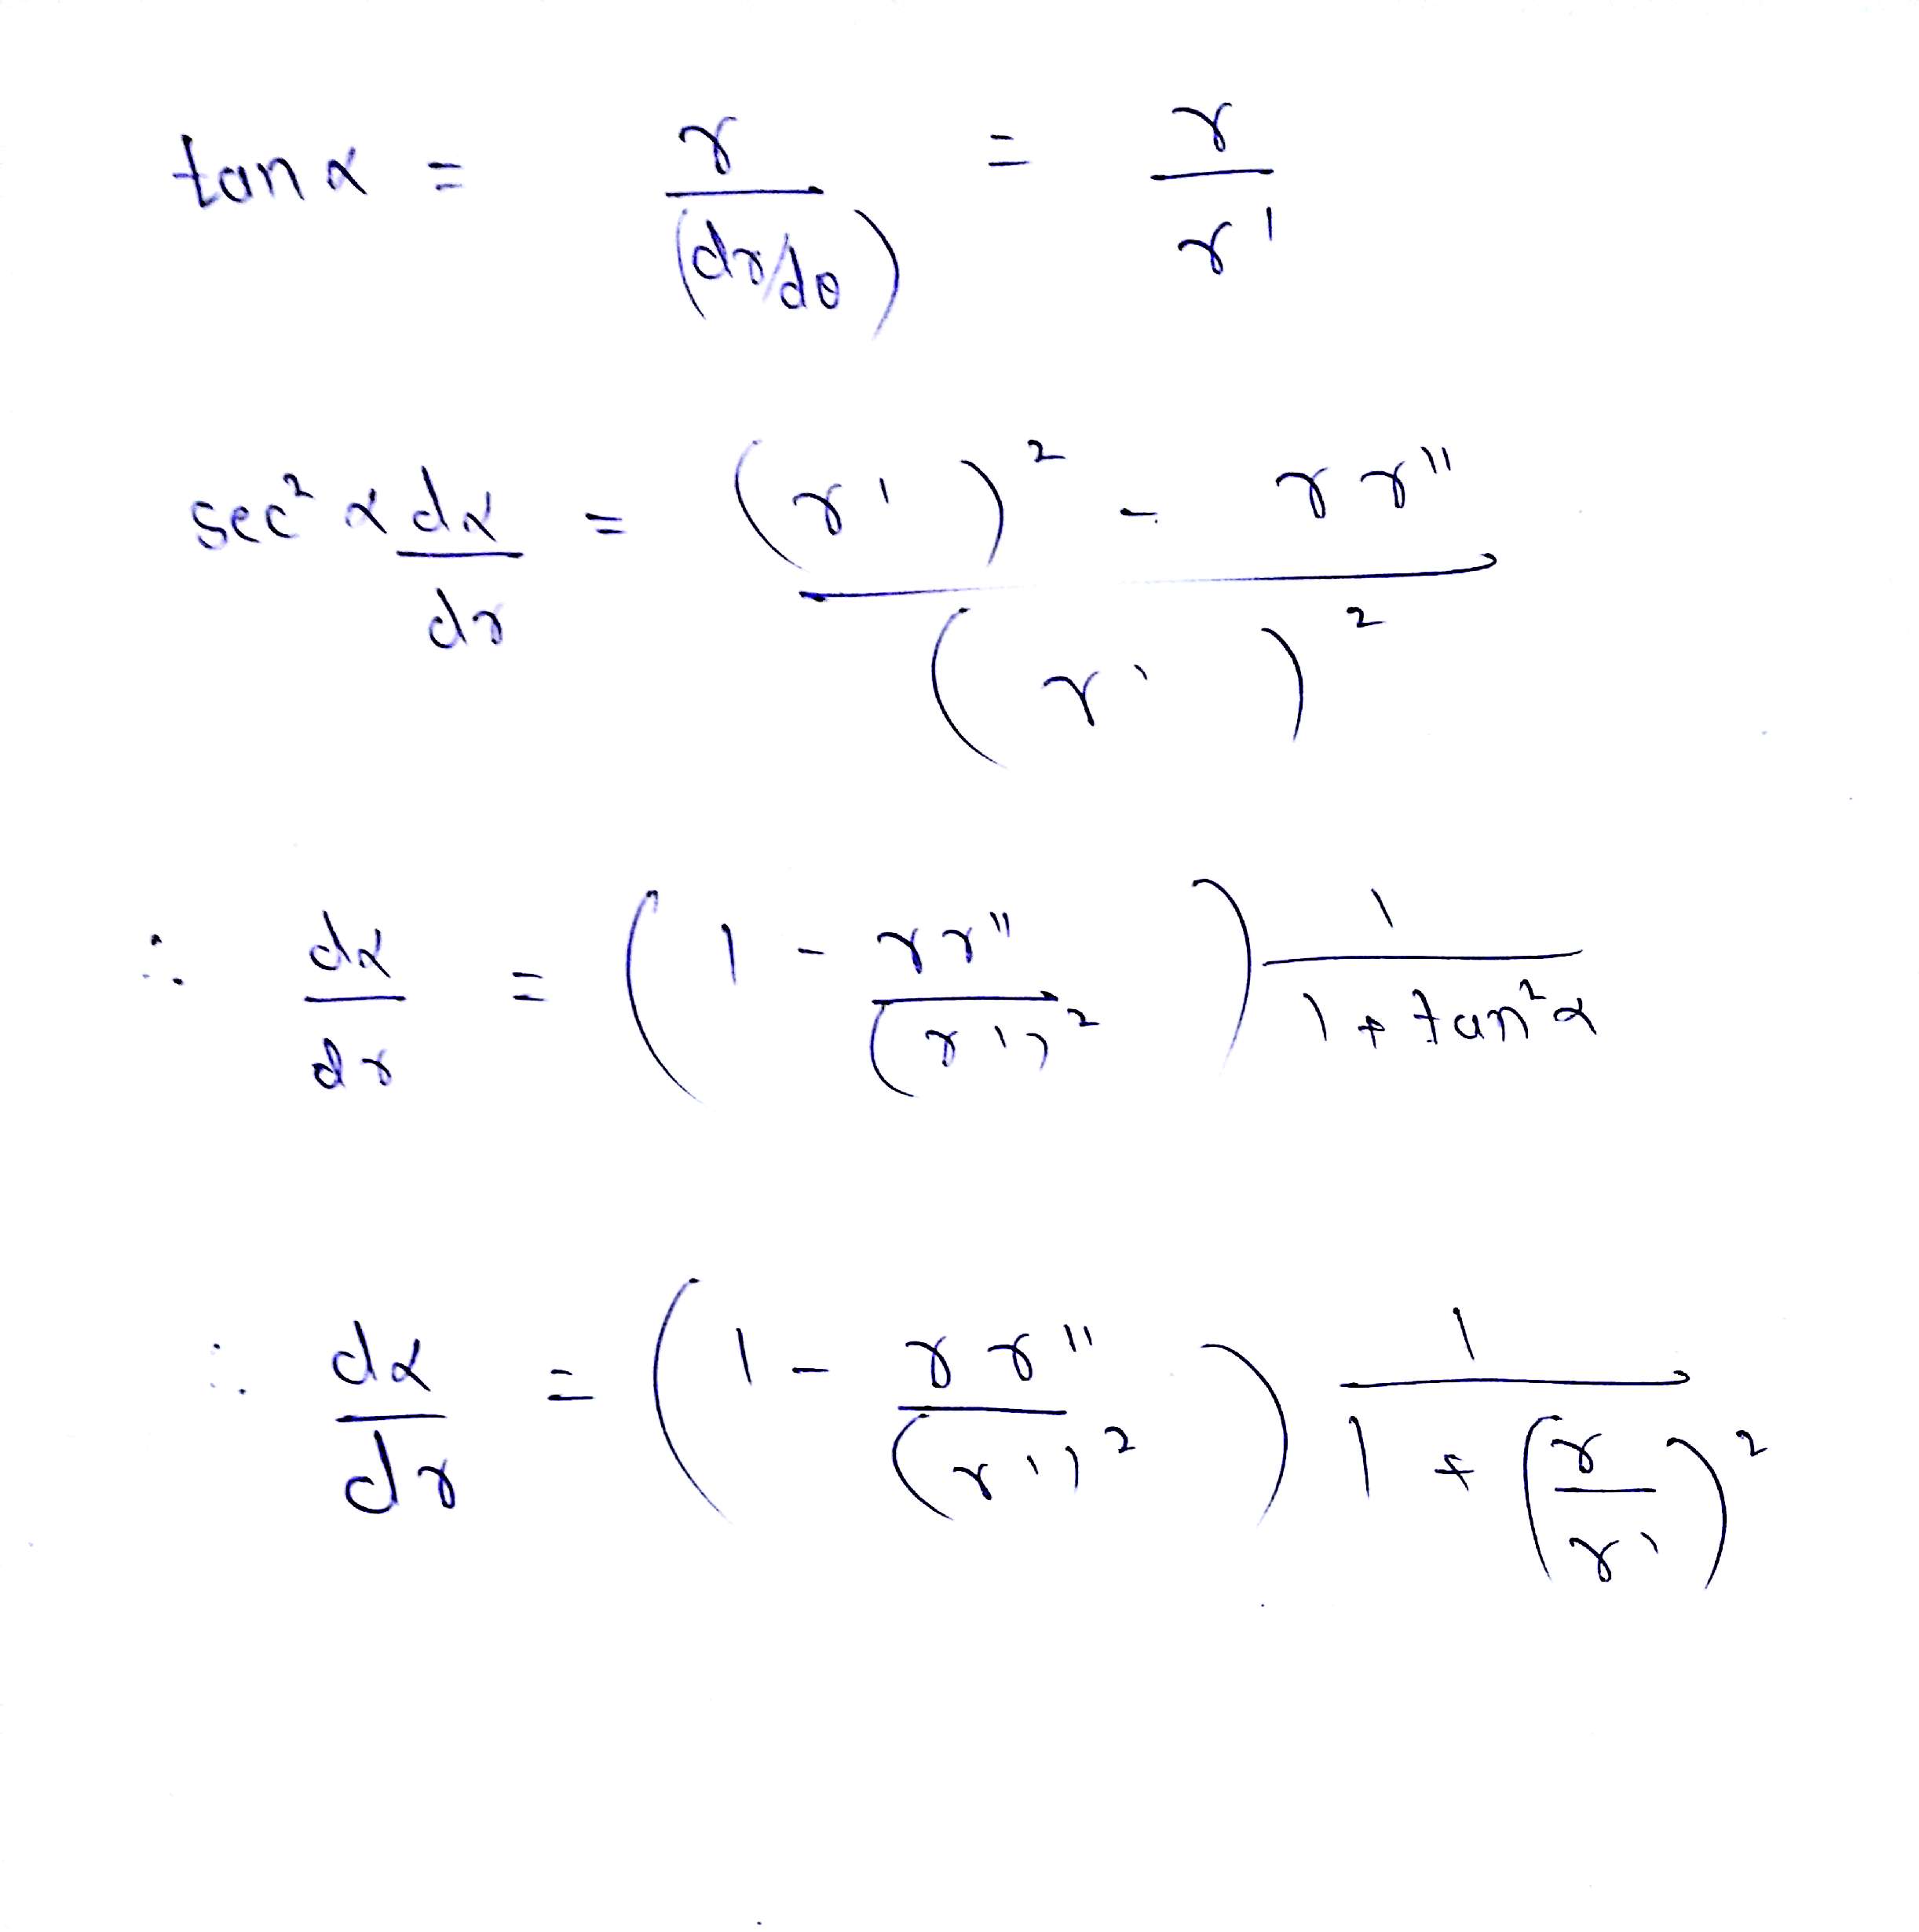 tan α = r / (dr/dθ) = r / r'
sec² α dα/dr = ((r')² - r r'') / (r')²
∴ dα/dr = (1 - r r'' / (r')²) 1 / (1 + tan² α)
∴ dα/dr = (1 - r r'' / (r')²) 1 / (1 + (r / r')²)